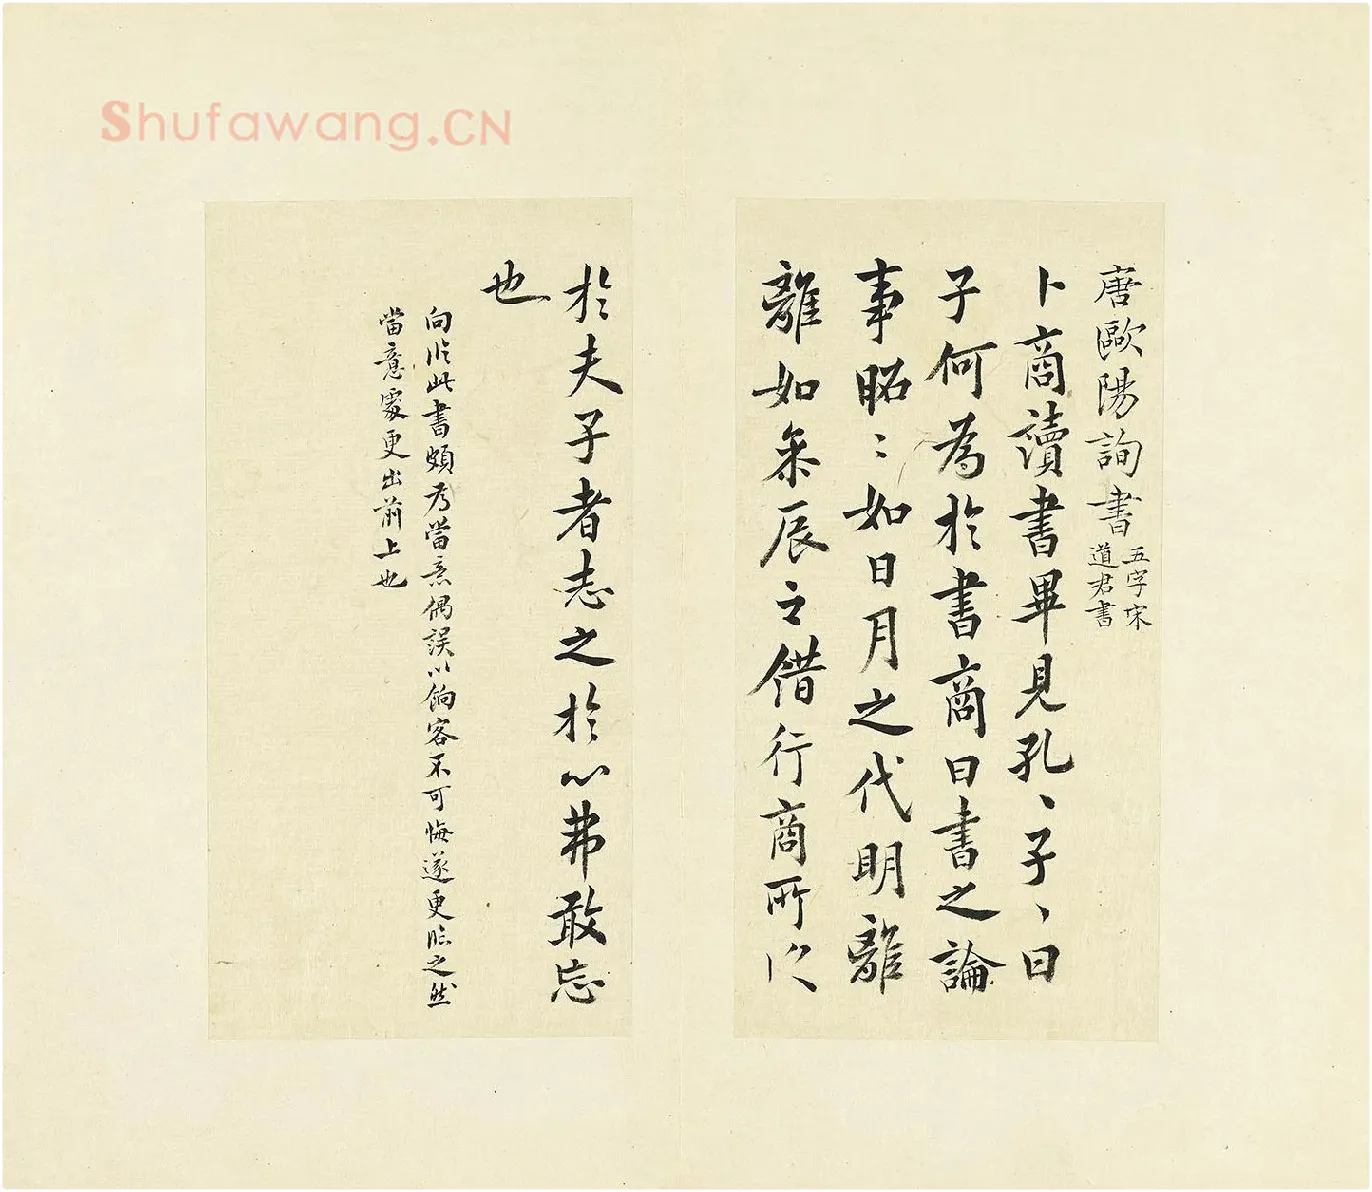 Shufawang.CN
唐歐陽詢書五字宋
道君書
卜商讀書畢見孔、子、曰
子何為於書商曰書之論
事昭〻如日月之代明離
離如參辰之錯行商所以
於夫子者志之於心弗敢忘
也
向臨此書頗為當意偶誤以餉客不可悔遂更臨之然
當意處更出前上也